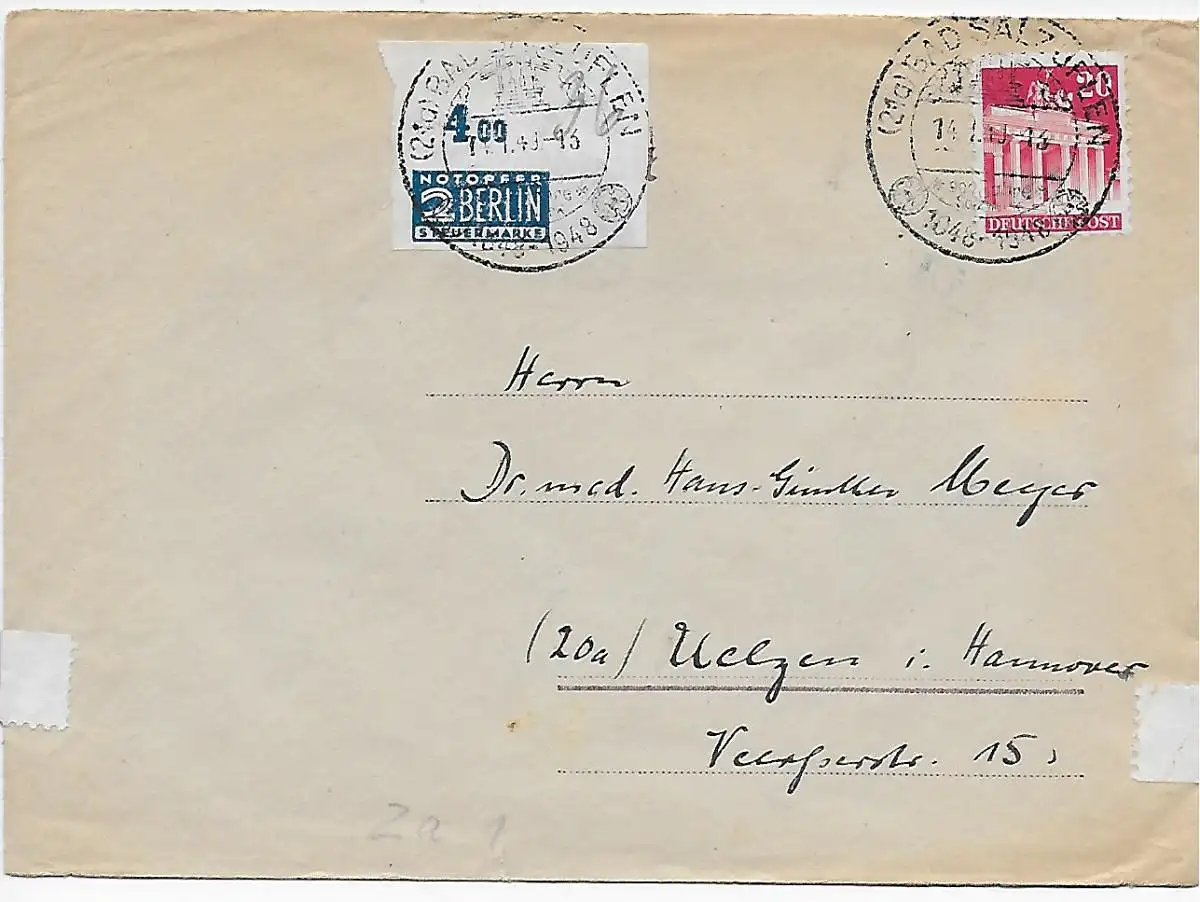 (21a) BAD SALZUFLEN
4,00
NOTOPFER
2 BERLIN
STEUERMARKE
1048-1948
(21a) BAD SALZUFLEN
20
DEUTSCHE POST
1048-1948
Herrn
Dr. med. Hans-Günther Meyer
(20a) Uelzen i. Hannover
Veerßerstr. 15
Za 1